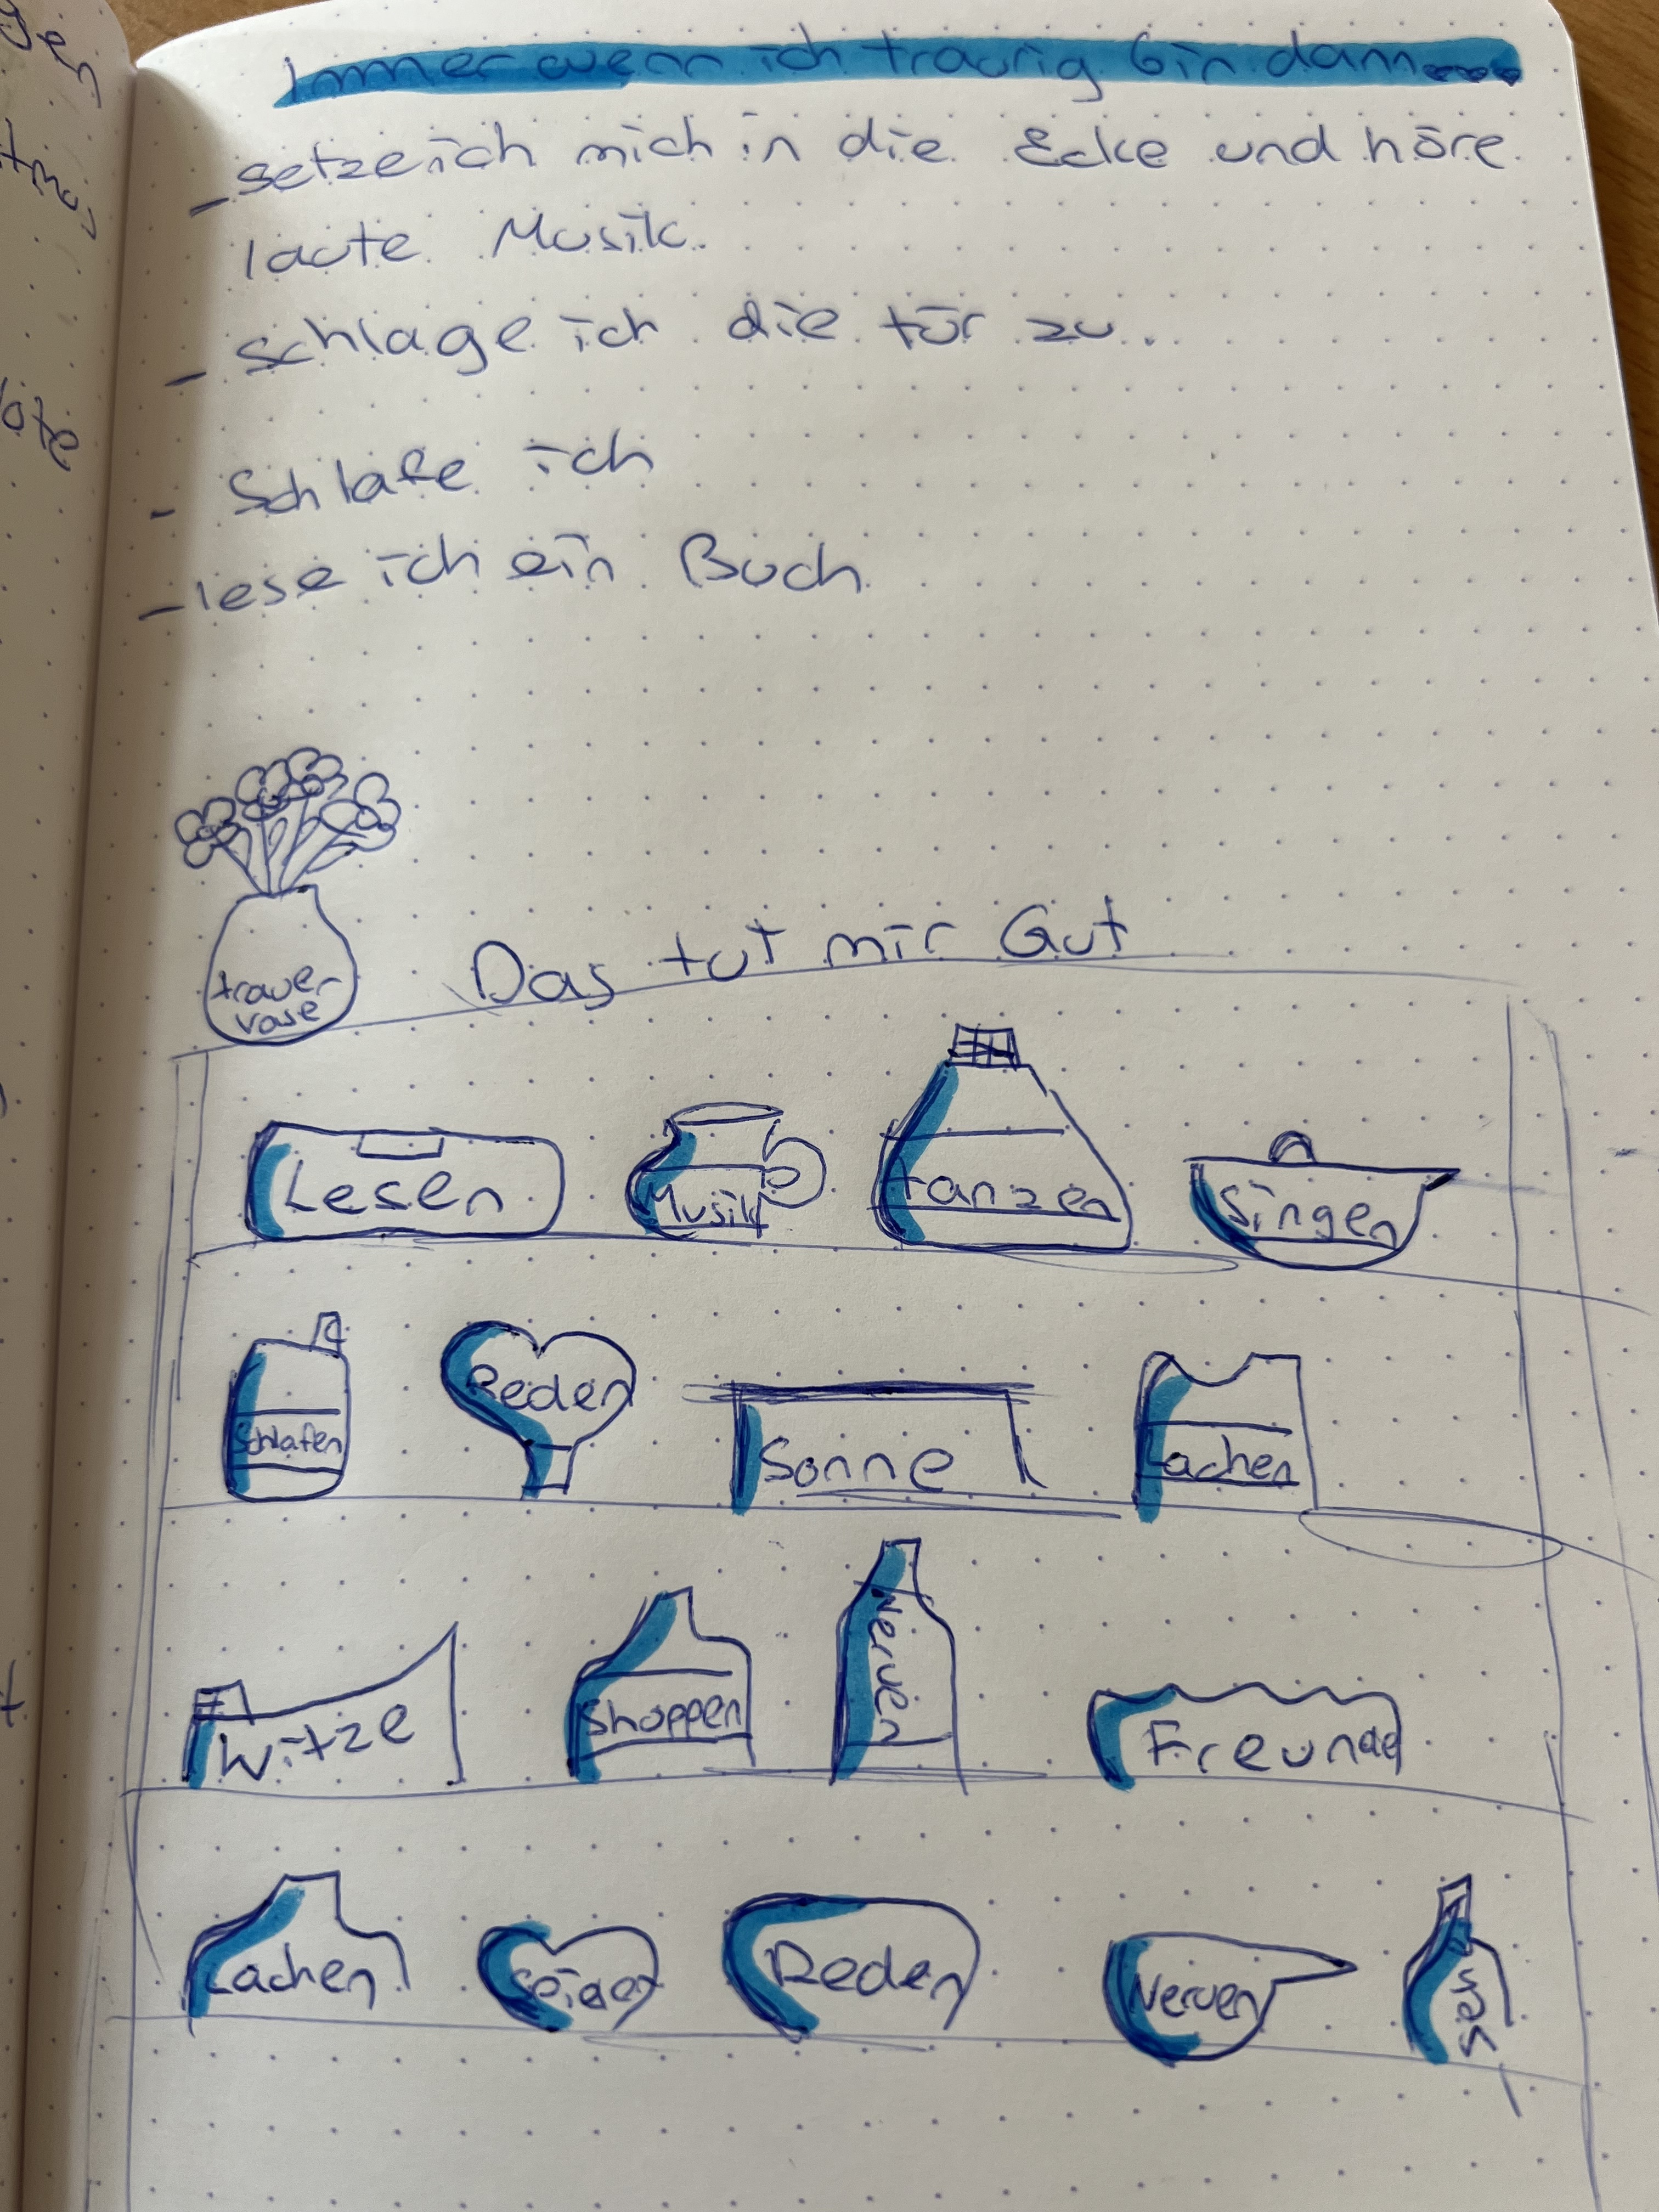 Immer wenn ich traurig bin dann....
- setze ich mich in die Ecke und höre
laute Musik.
- schlage ich die tür zu..
- Schlafe ich
- lese ich ein Buch
trauer
vase
Das tut mir Gut
Lesen Musik tanzen Singen
Schlafen Reden Sonne Lachen
Witze Shoppen Nerven Freunde
Lachen Reden Nerven